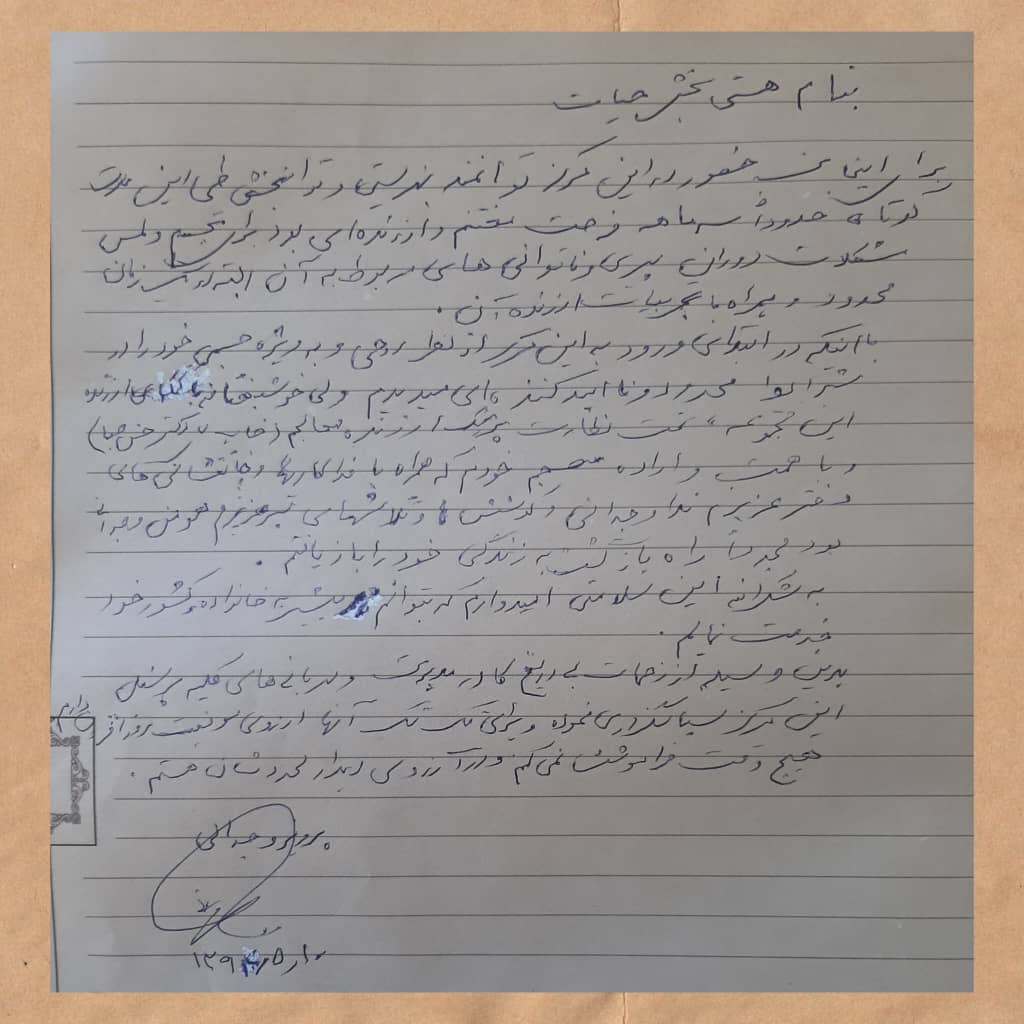 بنام هستی بخش حیات
برای اینجانب حضور در این مرکز توانمند بهزیستی و توانبخشی طی این مدت
کوتاه حدوداً سه ماهه فرصت مغتنم و ارزنده‌ای بود برای تجسم و لمس
مشکلات دوران پیری و ناتوانی های مربوط به آن البته در زمان
محدود و همراه با تجربیات ارزنده آن .
با اینکه در ابتدای ورود به این مرکز از نظر روحی و به ویژه جسمی خود را در
شرائط محدود و ناامید کننده ای میدیدم ولی خوشبختانه با کمکهای ارزنده
این مجموعه ، تحت نظارت پزشک ارزنده معالجم (جناب دکتر)
و با همت و اراده مصمم خودم که همراه با فداکاریها و جانفشانی های
دختر عزیزم ندا وجدانی و کوشش ها و تلاشهای پسر عزیزم وجدانی
بود مجدداً راه بازگشت به زندگی خود را باز یافتم .
به شکرانه این سلامتی امیدوارم که بتوانم بیشتر به خانواده و کشور خود
خدمت نمایم .
بدین وسیله از زحمات بی دریغ کادر مدیریت و مهربانی های کلیه پرسنل
این مرکز سپاسگزاری نموده و برای تک تک آنها آرزوی موفقیت روز افزون دارم
هیچ وقت فراموششان نمی کنم و در آرزوی دیدار مجددشان هستم .
پرویز وجدانی